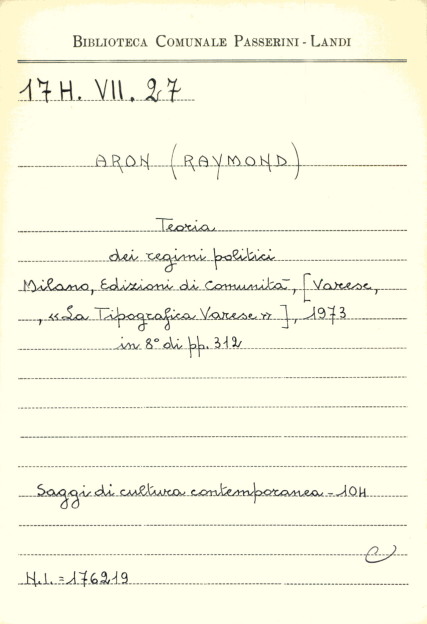 BIBLIOTECA COMUNALE PASSERINI - LANDI
17 H. VII. 27
ARON (RAYMOND)
Teoria
dei regimi politici
Milano, Edizioni di Comunità, [Varese,
, «La Tipografica Varese»], 1973
in 8° di pp. 312
Saggi di cultura contemporanea - 104
N.I. = 176219